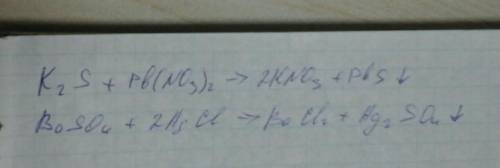 K₂S + Pb(NO₃)₂ → 2KNO₃ + PbS↓
BaSO₄ + 2AgCl → BaCl₂ + Ag₂SO₄↓